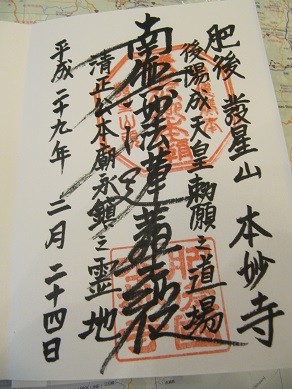 肥後 發星山 本妙寺
後陽成天皇勅願之道場
南無妙法蓮華経
清正公本廟永鎮之霊地
平成二十九年 二月 二十四日